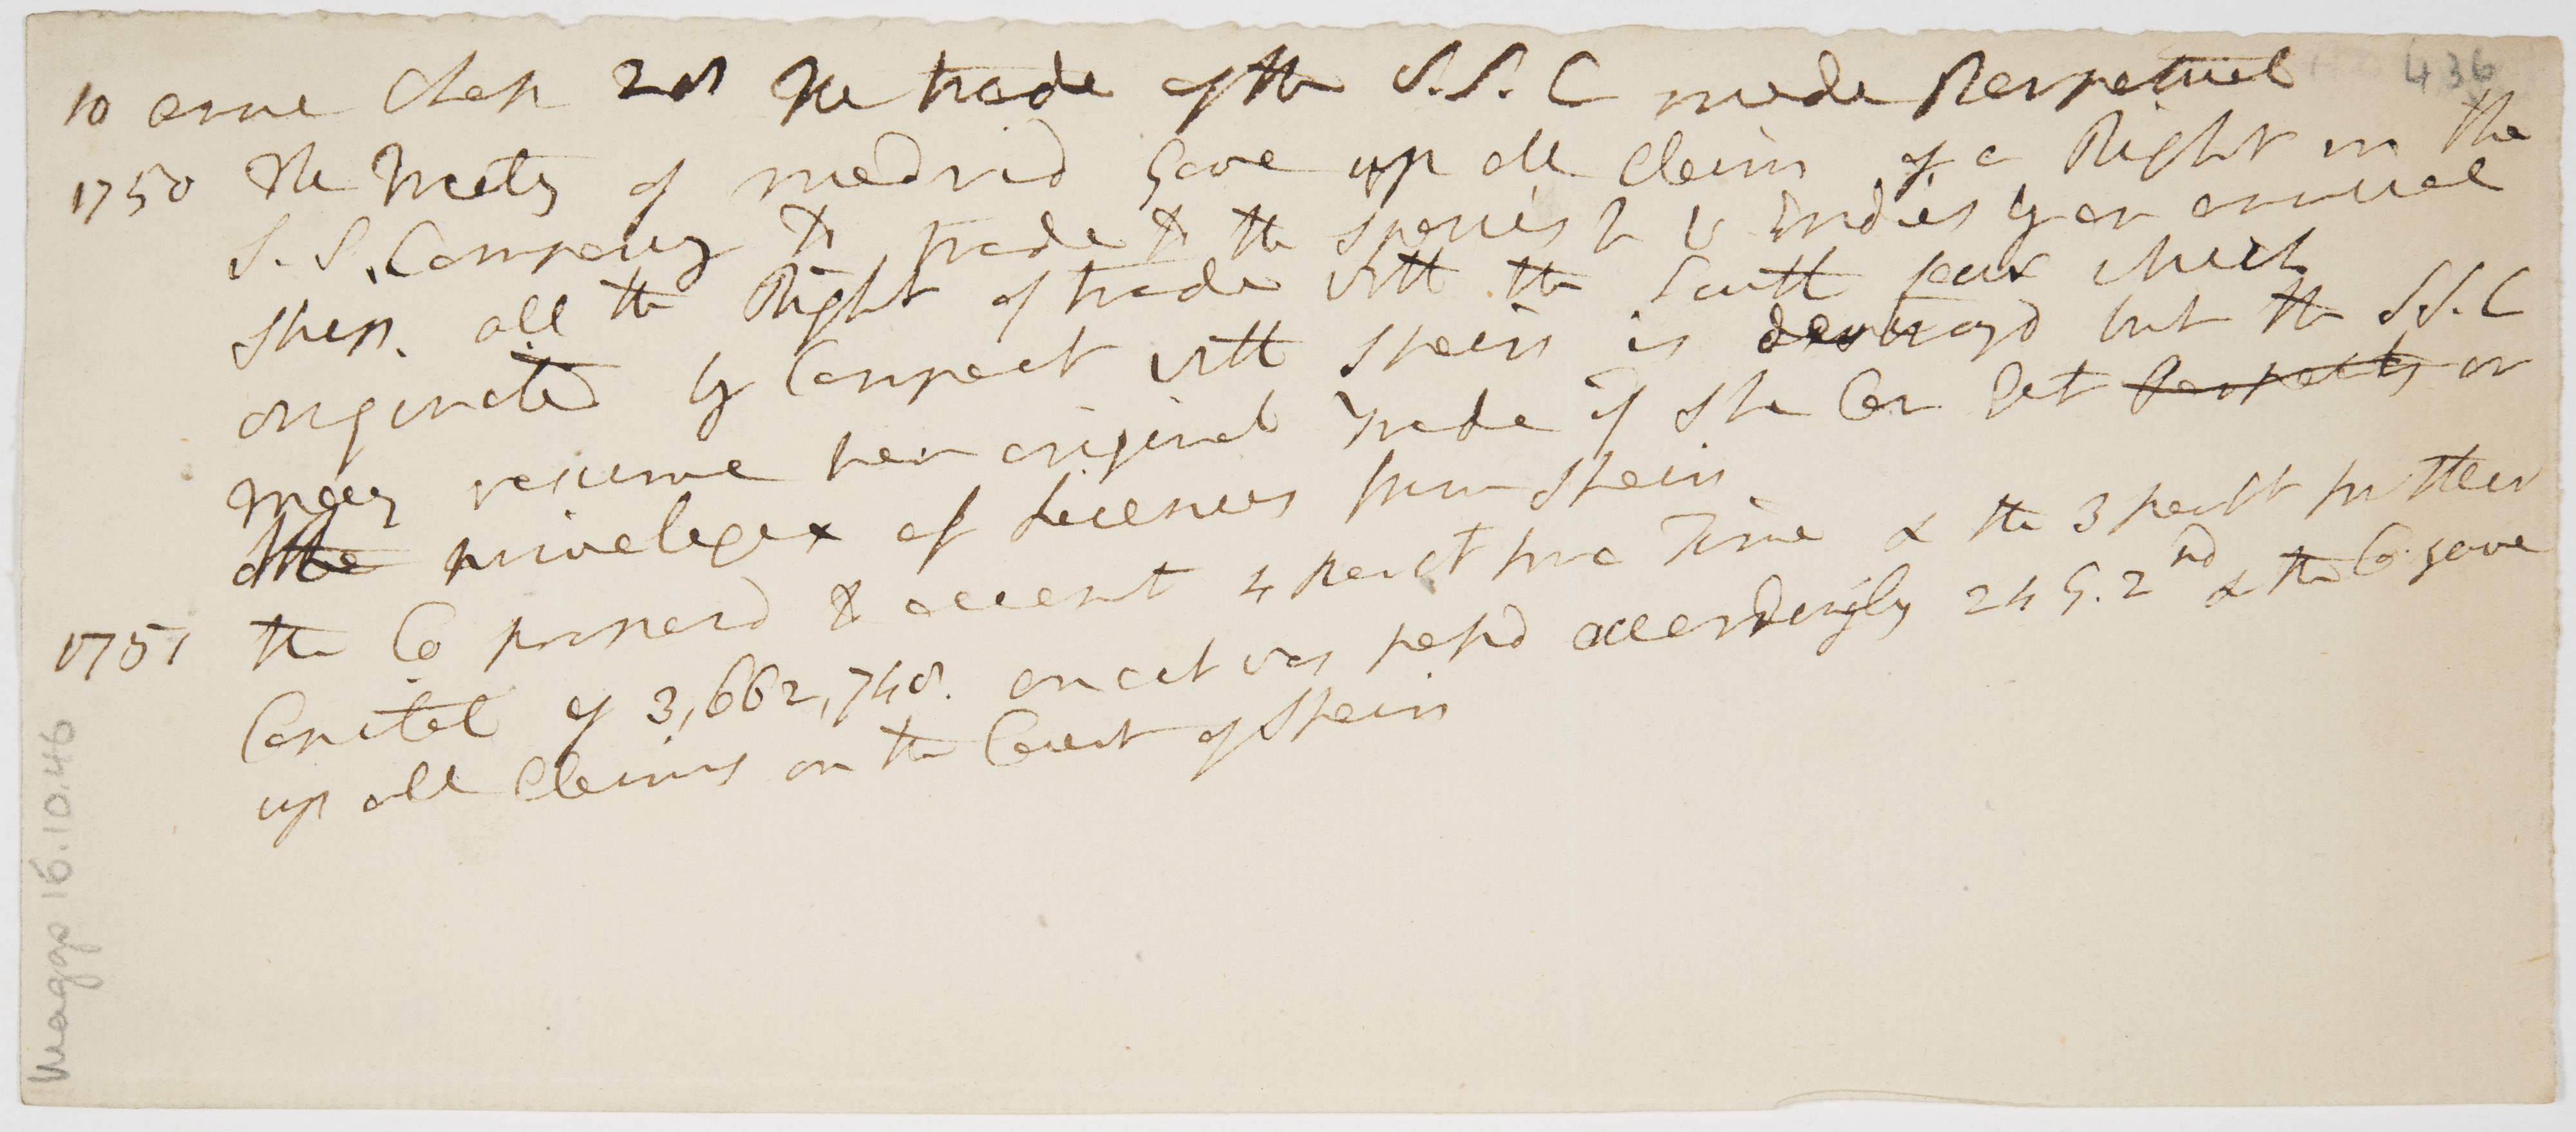 436
10 anne Chap 28 The trade of the S.S. C made Perpetual
1750 The Treaty of Madrid Gave up all Claim of a Right in the
S.S. Company to trade to the Spanish W Indies by an annual
Ship. all the Right of trade with the South seas which
originated by Compact with Spain is destroyd but the S.S. C
may resume her original Trade if She Can Get Passports or
the priveleges of Licenses from Spain
1751 the Co proposed to accept 4 per Ct for a Time & the 3 per Ct for their
Capital of 3,662,748. an act was passd accordingly 24 G. 2nd & the Co. gave
up all Claims on the Court of Spain
Maggs 16.10.46